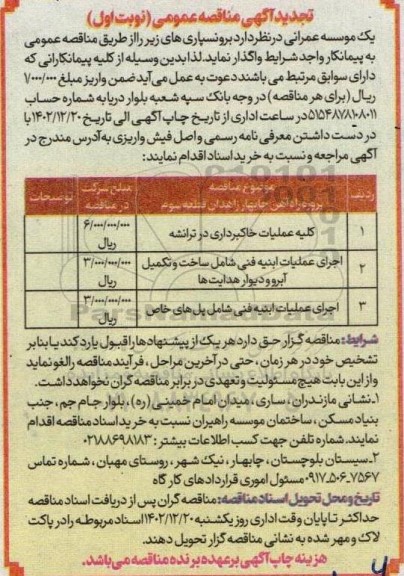 تجدید آگهی مناقصه عمومی (نوبت اول)
یک موسسه عمرانی در نظر دارد برونسپاری های زیر را از طریق مناقصه عمومی
به پیمانکار واجد شرایط واگذار نماید. لذا بدین وسیله از کلیه پیمانکارانی که
دارای سوابق مرتبط می باشند دعوت به عمل می آید ضمن واریز مبلغ ۱/۰۰۰/۰۰۰
ریال (برای هر مناقصه) در وجه بانک سپه شعبه بلوار دریا به شماره حساب
۵۱۵۴۸۷۸۱۰۸۰۱۱ در ساعت اداری از تاریخ چاپ آگهی الی تاریخ ۱۴۰۲/۱۲/۲۰ با
در دست داشتن معرفی نامه رسمی و اصل فیش واریزی به آدرس مندرج در
آگهی مراجعه و نسبت به خرید اسناد اقدام نمایند:
ردیف موضوع مناقصه پروژه راه آهن چابهار زاهدان قطعه سوم مبلغ شرکت در مناقصه توضیحات
۱ کلیه عملیات خاکبرداری در ترانشه ۶/۰۰۰/۰۰۰/۰۰۰ ریال
۲ اجرای عملیات ابنیه فنی شامل ساخت و تکمیل آبرو و دیوار هدایت ها ۳/۰۰۰/۰۰۰/۰۰۰ ریال
۳ اجرای عملیات ابنیه فنی شامل پل های خاص ۳/۰۰۰/۰۰۰/۰۰۰ ریال
ParsNamadData
شرایط: مناقصه گزار حق دارد هر یک از پیشنهادها را قبول یا رد کند یا بنا بر
تشخیص خود در هر زمان، حتی در آخرین مراحل، فرآیند مناقصه را لغو نماید
و از این بابت هیچ مسئولیت و تعهدی در برابر مناقصه گران نخواهد داشت.
۱. نشانی مازندران، ساری، میدان امام خمینی (ره)، بلوار جام جم، جنب
بنیاد مسکن، ساختمان موسسه راهیران نسبت به خرید اسناد مناقصه اقدام
نمایند. شماره تلفن جهت کسب اطلاعات بیشتر: ۰۲۱۸۸۶۹۸۱۸۳
۲. سیستان بلوچستان، چابهار، نیک شهر، روستای مهبان، شماره تماس
۰۹۱۷۵۰۶۷۵۶۷ مسئول اموری قراردادهای کارگاه
تاریخ و محل تحویل اسناد مناقصه: مناقصه گران پس از دریافت اسناد مناقصه
حداکثر تا پایان وقت اداری روز یکشنبه ۱۴۰۲/۱۲/۲۰ اسناد مربوطه را در پاکت
لاک و مهر شده به نشانی مناقصه گزار تحویل دهند.
هزینه چاپ آگهی بر عهده برنده مناقصه می باشد.